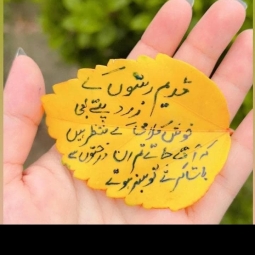 قدیم رشتوں کے
زرد پتے بھی
خوش کلامی کے منتظر ہیں
کہ آ بھی جاتے تم ان درختوں سے
بات کرتے تو سبز ہوتے